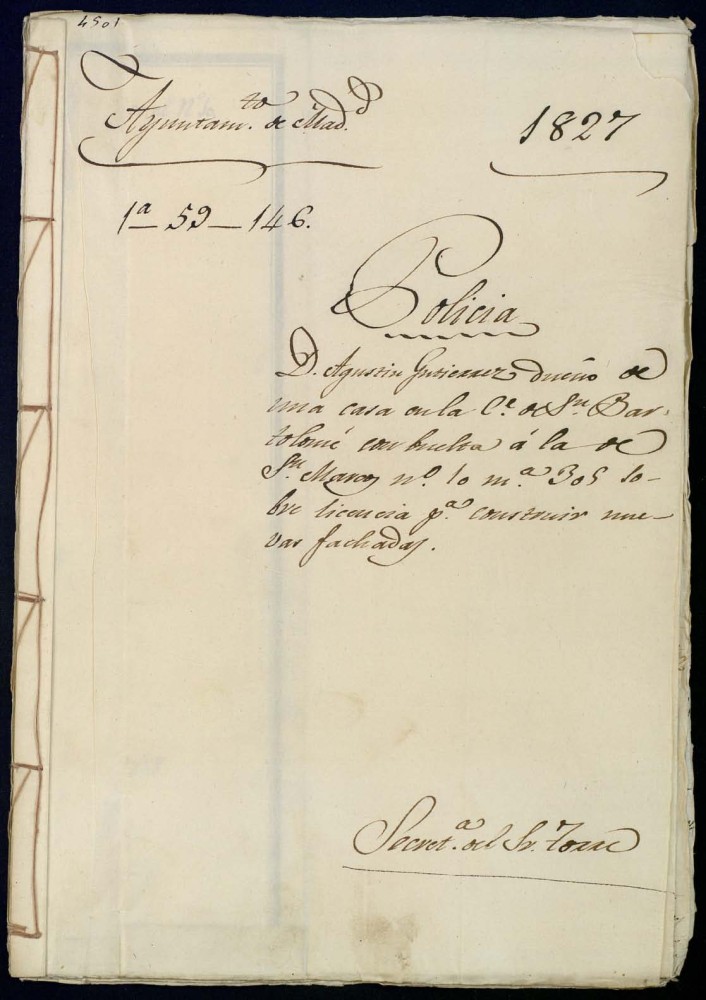 4501
Ayuntam.to de Mad.d
1827
1a 59 - 146.
Policia
D. Agustin Gutierrez dueño de
una casa en la C.e de Sn. Bar-
tolomé con buelta á la de
Sn. Marcos nº. 10 m.a 305 so-
bre licencia p.a construir nue-
vas fachadas.
Secret.a del Sr. Torre